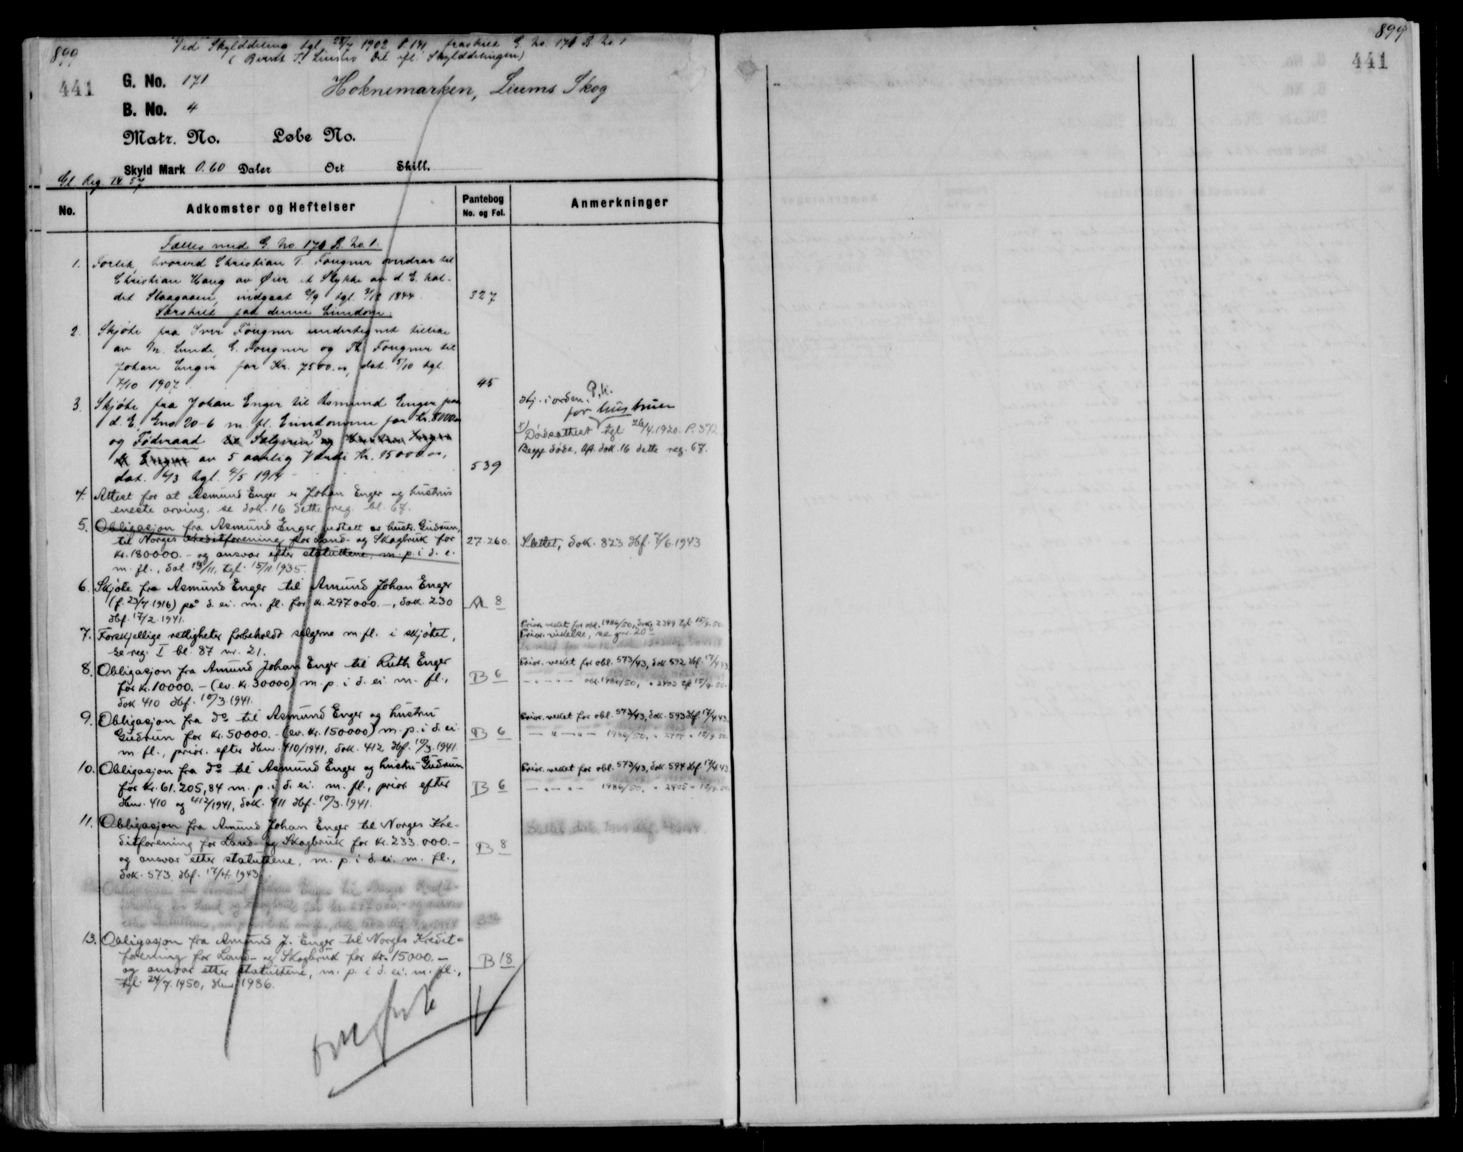 899
Ved Skylddeling tgl. 28/7 1902 fraskilt G. No. 171 B. No 1
441
G. No. 171
Hoknemarken, Liums Skog
B. No. 4
Matr. No. Løbe No.
Skyld Mark 0.60 Daler Ort Skill.
Gl. Reg. 14 57
No. Adkomster og Heftelser Pantebog No. og Fol. Anmerkninger
Fælles med G. No. 171 B. No. 1.
1. Forlik, hvorved Christian T. Fougner overdrar til
Christian Haug av Øier et Stykke av d. E. kal-
det Staagaaen, indgaat tgl. 1844. 327
Særskilt paa denne Eiendom.
2. Skjøte fra Iver Fougner undertegnet tillike
av M. Lunde, E. Fougner og Th. Fougner til
Johan Enger for Kr. 7500.00, dat. tgl.
7/10 1902. 45
3. Skjøte fra Johan Enger til Asmund Enger paa
d. E. Gno 20-6 m. fl. Eiendomme for
og Føderaad
av 5 aarlig Værdi Kr. 15000.00,
dat. 6/3 tgl. 4/5 1914 539
Hj. i orden. P.H.
for hustruen
1) Dødsattest tgl 26/4.1920. P. 572
Begge døde, løp. dok. 16 dette reg. 67.
4. Attest for at Asmund Enger er Johan Enger og hustrus
eneste arving. se dok. 16 dette reg. bl. 67.
5. Obligasjon fra Asmund Enger vedtatt av hustr. Gudrun,
til Norges Kreditforening for Land- og Skogbruk for
kr. 180000.- og ansvar efter statuttene, m. p. i d. e.
m. fl., dat 13/11, tgl. 15/11 1935. 27.260. Slettet, dok. 823 dbf. 7/6 1943
6. Skjøte fra Asmund Enger til Amund Johan Enger
(f. 23/4 1916) på d. ei. m. fl. for kr. 297000.-, dok. 230 A 8
dbf. 17/2 1941.
7. Forskjellige rettigheter forbeholdt selgerne m fl. i skjøtet,
se reg. I bl. 87 nr. 21.
Prior. veket for obl. 1986/50, dok. 2399
Prior. vikelse, se gnr 20
8. Obligasjon fra Amund Johan Enger til Ruth Enger
for kr. 10000.- (ev. kr. 30000) m. p. i d. ei. m. fl., B 6
dok 410 dbf. 10/3 1941.
Prior. veket for obl. 573/43, dok 592 dbf. 17/4 43
- - - - - obl. 1986/50, " 2403
9. Obligasjon fra do til Asmund Enger og hustru
Gudrun for kr. 50000.- (ev. kr. 150000) m. p. i d. ei
m fl., prior. efter dbnr. 410/1941, dok. 412 dbf. 10/3 1941 B 6
Prior. veket for obl. 573/43, dok. 593 dbf. 17/4 43
- " - " - 1986/50,
10. Obligasjon fra do til Asmund Enger og hustru Gudrun
for kr. 61.205,84 m. p. i d. ei. m. fl., prior efter B 6
dbnr. 410 og 412/1941, dok. 411 dbf. 10/3 1941.
Prior. veket for obl. 573/43, dok. 594 dbf. 17/4 43
- - - - - 1986/50, " 2405
11. Obligasjon fra Amund Johan Enger til Norges Kre-
ditforening for Land- og Skogbruk for kr. 233.000.-
og ansvar etter statuttene, m. p. i d. ei. m. fl., B 8
dok. 573 dbf. 17/4. 1943.
13. Obligasjon fra Amund J. Enger til Norges Kredit=
forening for Land- og Skogbruk for kr. 15000.-
og ansvar etter statuttene, m. p. i d. ei. m. fl., B 18
tgl. 24/7. 1950, dbnr 1986.
899
441